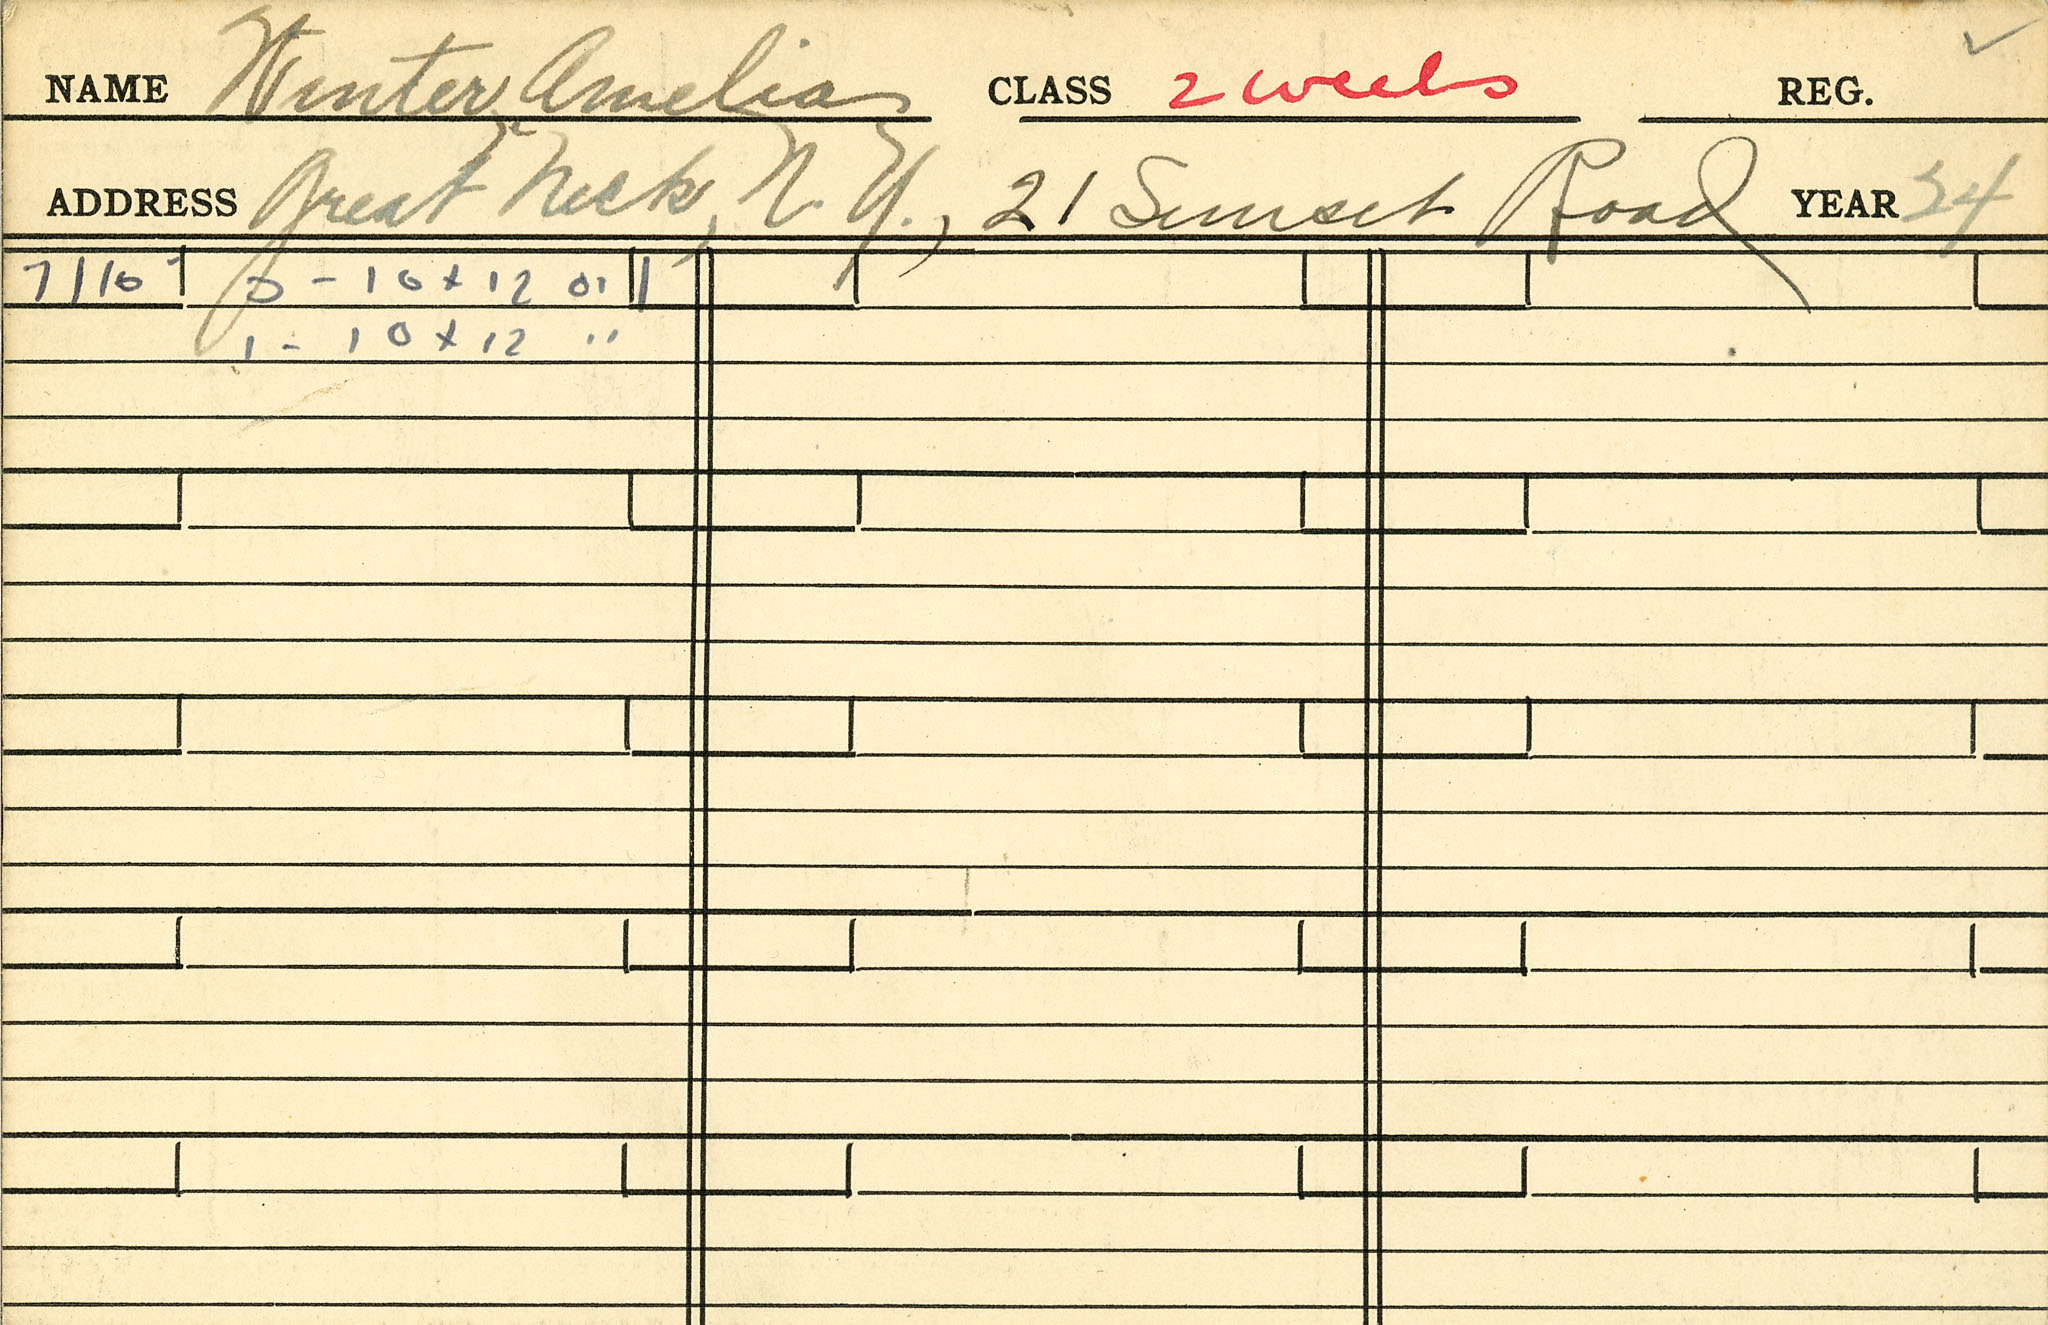 NAME Winter, Amelia CLASS 2 weeks REG. ✓
ADDRESS Great Neck, N.Y., 21 Sunset Road YEAR 34
7/10 - 10 x 12
1 - 10 x 12 "